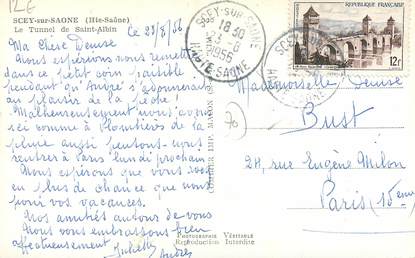 12E
SCEY-sur-SAONE (Hte-Saône)
Le Tunnel de Saint-Albin
le 23/8/56
Ma Chère Denise
Nous espérions nous remettre
dans ce petit coin paisible
pendant qu'André s'adonnerait
au plaisir de la pêche,
Malheureusement nous avons
ici comme à Plombières de la
pluie aussi pensons-nous
rentrer à Paris lundi prochain
Nous espérons que vous
en plus de chance que nous
pour vos vacances.
Nos amitiés autour de vous
Nous vous embrassons bien
affectueusement Juliette
André
PHOTOGRAPHIE VÉRITABLE
Reproduction Interdite
COMBIER IMP. MACON
SCEY-SUR-SAONE
18 30
23 - 8
1956
HTE SAONE
POSTES
RÉPUBLIQUE FRANÇAISE
12f
70
Mademoiselle Denise
Bust
24, rue Eugène Milon
Paris (15ème)